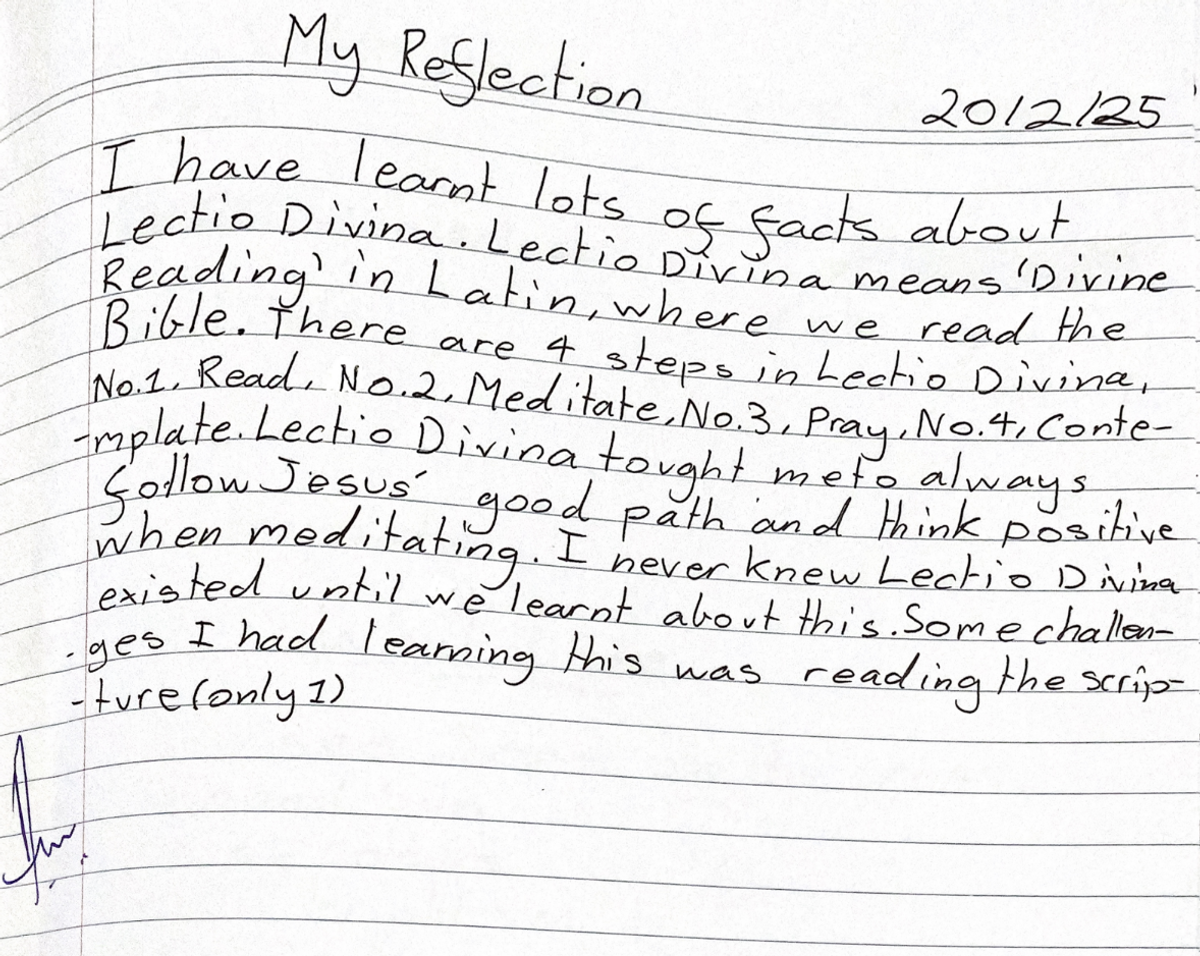 My Reflection
20/2/25
I have learnt lots of facts about
Lectio Divina. Lectio Divina means 'Divine
Reading' in Latin, where we read the
Bible. There are 4 steps in Lectio Divina,
No.1, Read, No.2, Meditate, No.3, Pray, No.4, Conte-
-mplate. Lectio Divina tought me to always
follow Jesus' good path and think positive
when meditating. I never knew Lectio Divina
existed until we learnt about this. Some challen-
-ges I had learning this was reading the scrip-
-ture (only 1)